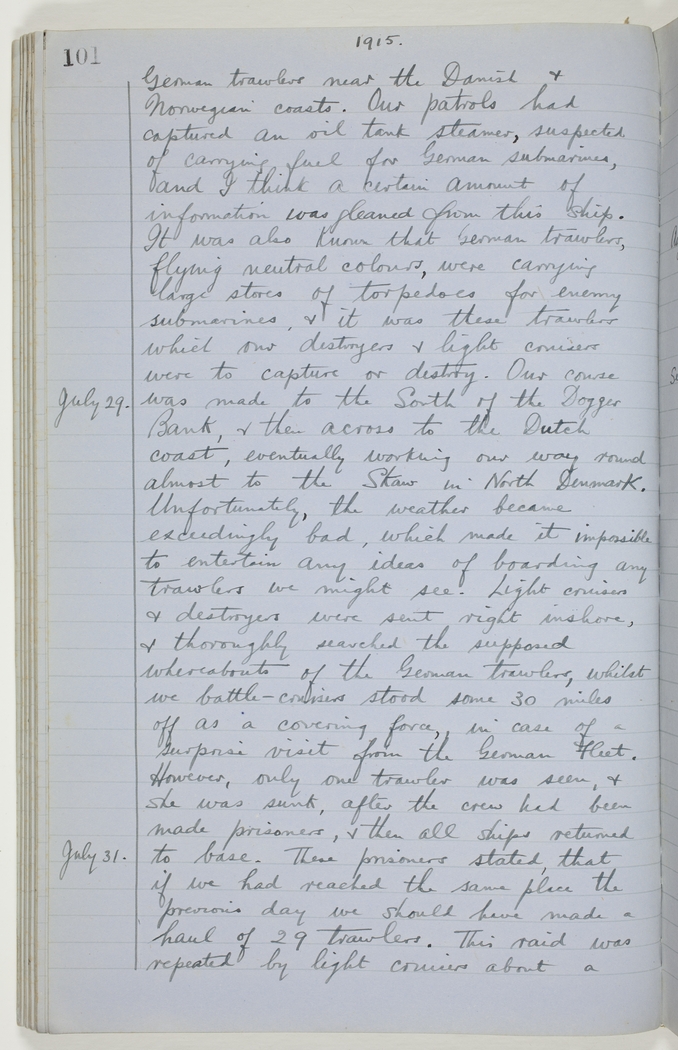 101
1915.
German trawlers near the Danish &
Norwegian coasts. Our patrols had
captured an oil tank steamer, suspected
of carrying fuel for German submarines,
and I think a certain amount of
information was gleaned from this ship.
It was also known that German trawlers,
flying neutral colours, were carrying
large stores of torpedoes for enemy
submarines, & it was these trawlers
which our destroyers & light cruisers
were to capture or destroy. Our course
July 29. was made to the South of the Dogger
Bank, & then across to the Dutch
coast, eventually working our way round
almost to the Skaw in North Denmark.
Unfortunately, the weather became
exceedingly bad, which made it impossible
to entertain any ideas of boarding any
trawlers we might see. Light cruisers
& destroyers were sent right inshore,
& thoroughly searched the supposed
whereabouts of the German trawlers, whilst
we battle-cruisers stood some 30 miles
off as a covering force, in case of a
surprise visit from the German Fleet.
However, only one trawler was seen, &
she was sunk, after the crew had been
made prisoners, & then all ships returned
July 31. to base. These prisoners stated that
if we had reached the same place the
previous day we should have made a
haul of 29 trawlers. This raid was
repeated by light cruisers about a